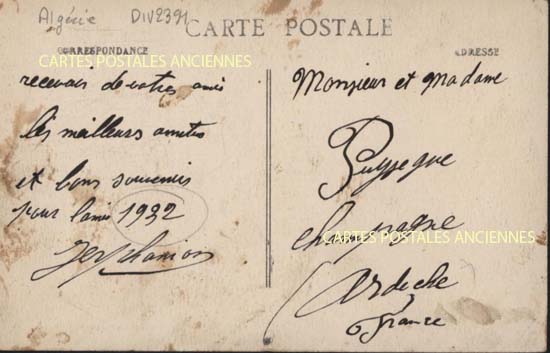 Algérie DIV2391
CARTE POSTALE
CORRESPONDANCE
ADRESSE
CARTES POSTALES ANCIENNES
recevais de votre ami
les meilleurs amitiés
et bons souvenirs
pour l'année 1932
Monsieur et Madame
Champagne
CARTES POSTALES ANCIENNES
Ardèche
France